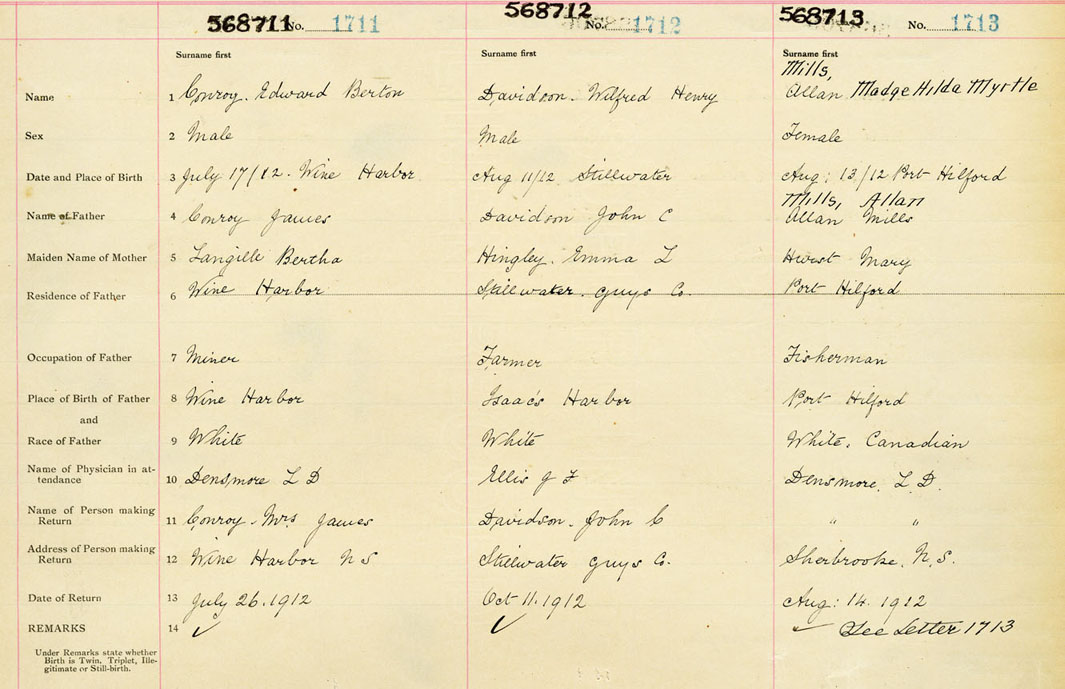 568711 No. 1711 568712 No. 1712 568713 No. 1713
Surname first Surname first Surname first
Mills,
Name 1 Conroy. Edward Berton Davidson. Wilfred Henry Allan Madge Hilda Myrtle
Sex 2 Male Male Female
Date and Place of Birth 3 July 17/12. Wine Harbor Aug 11/12 Stillwater Aug: 13/12 Port Hilford
Mills, Allan
Name of Father 4 Conroy James Davidson John C Allan Mills
Maiden Name of Mother 5 Langille Bertha Hingley. Emma L Hurst Mary
Residence of Father 6 Wine Harbor Stillwater. Guys Co. Port Hilford
Occupation of Father 7 Miner Farmer Fisherman
Place of Birth of Father 8 Wine Harbor Isaac's Harbor Port Hilford
and
Race of Father 9 White White White. Canadian
Name of Physician in at-
tendance 10 Densmore L D Ellis J F Densmore. L. D.
Name of Person making
Return 11 Conroy. Mrs James Davidson. John C " "
Address of Person making
Return 12 Wine Harbor N S Stillwater Guys Co. Sherbrooke. N. S.
Date of Return 13 July 26. 1912 Oct 11. 1912 Aug: 14. 1912
REMARKS 14 ✓ ✓ ✓ See Letter 1713
Under Remarks state whether
Birth is Twin, Triplet, Ille-
gitimate or Still-birth.